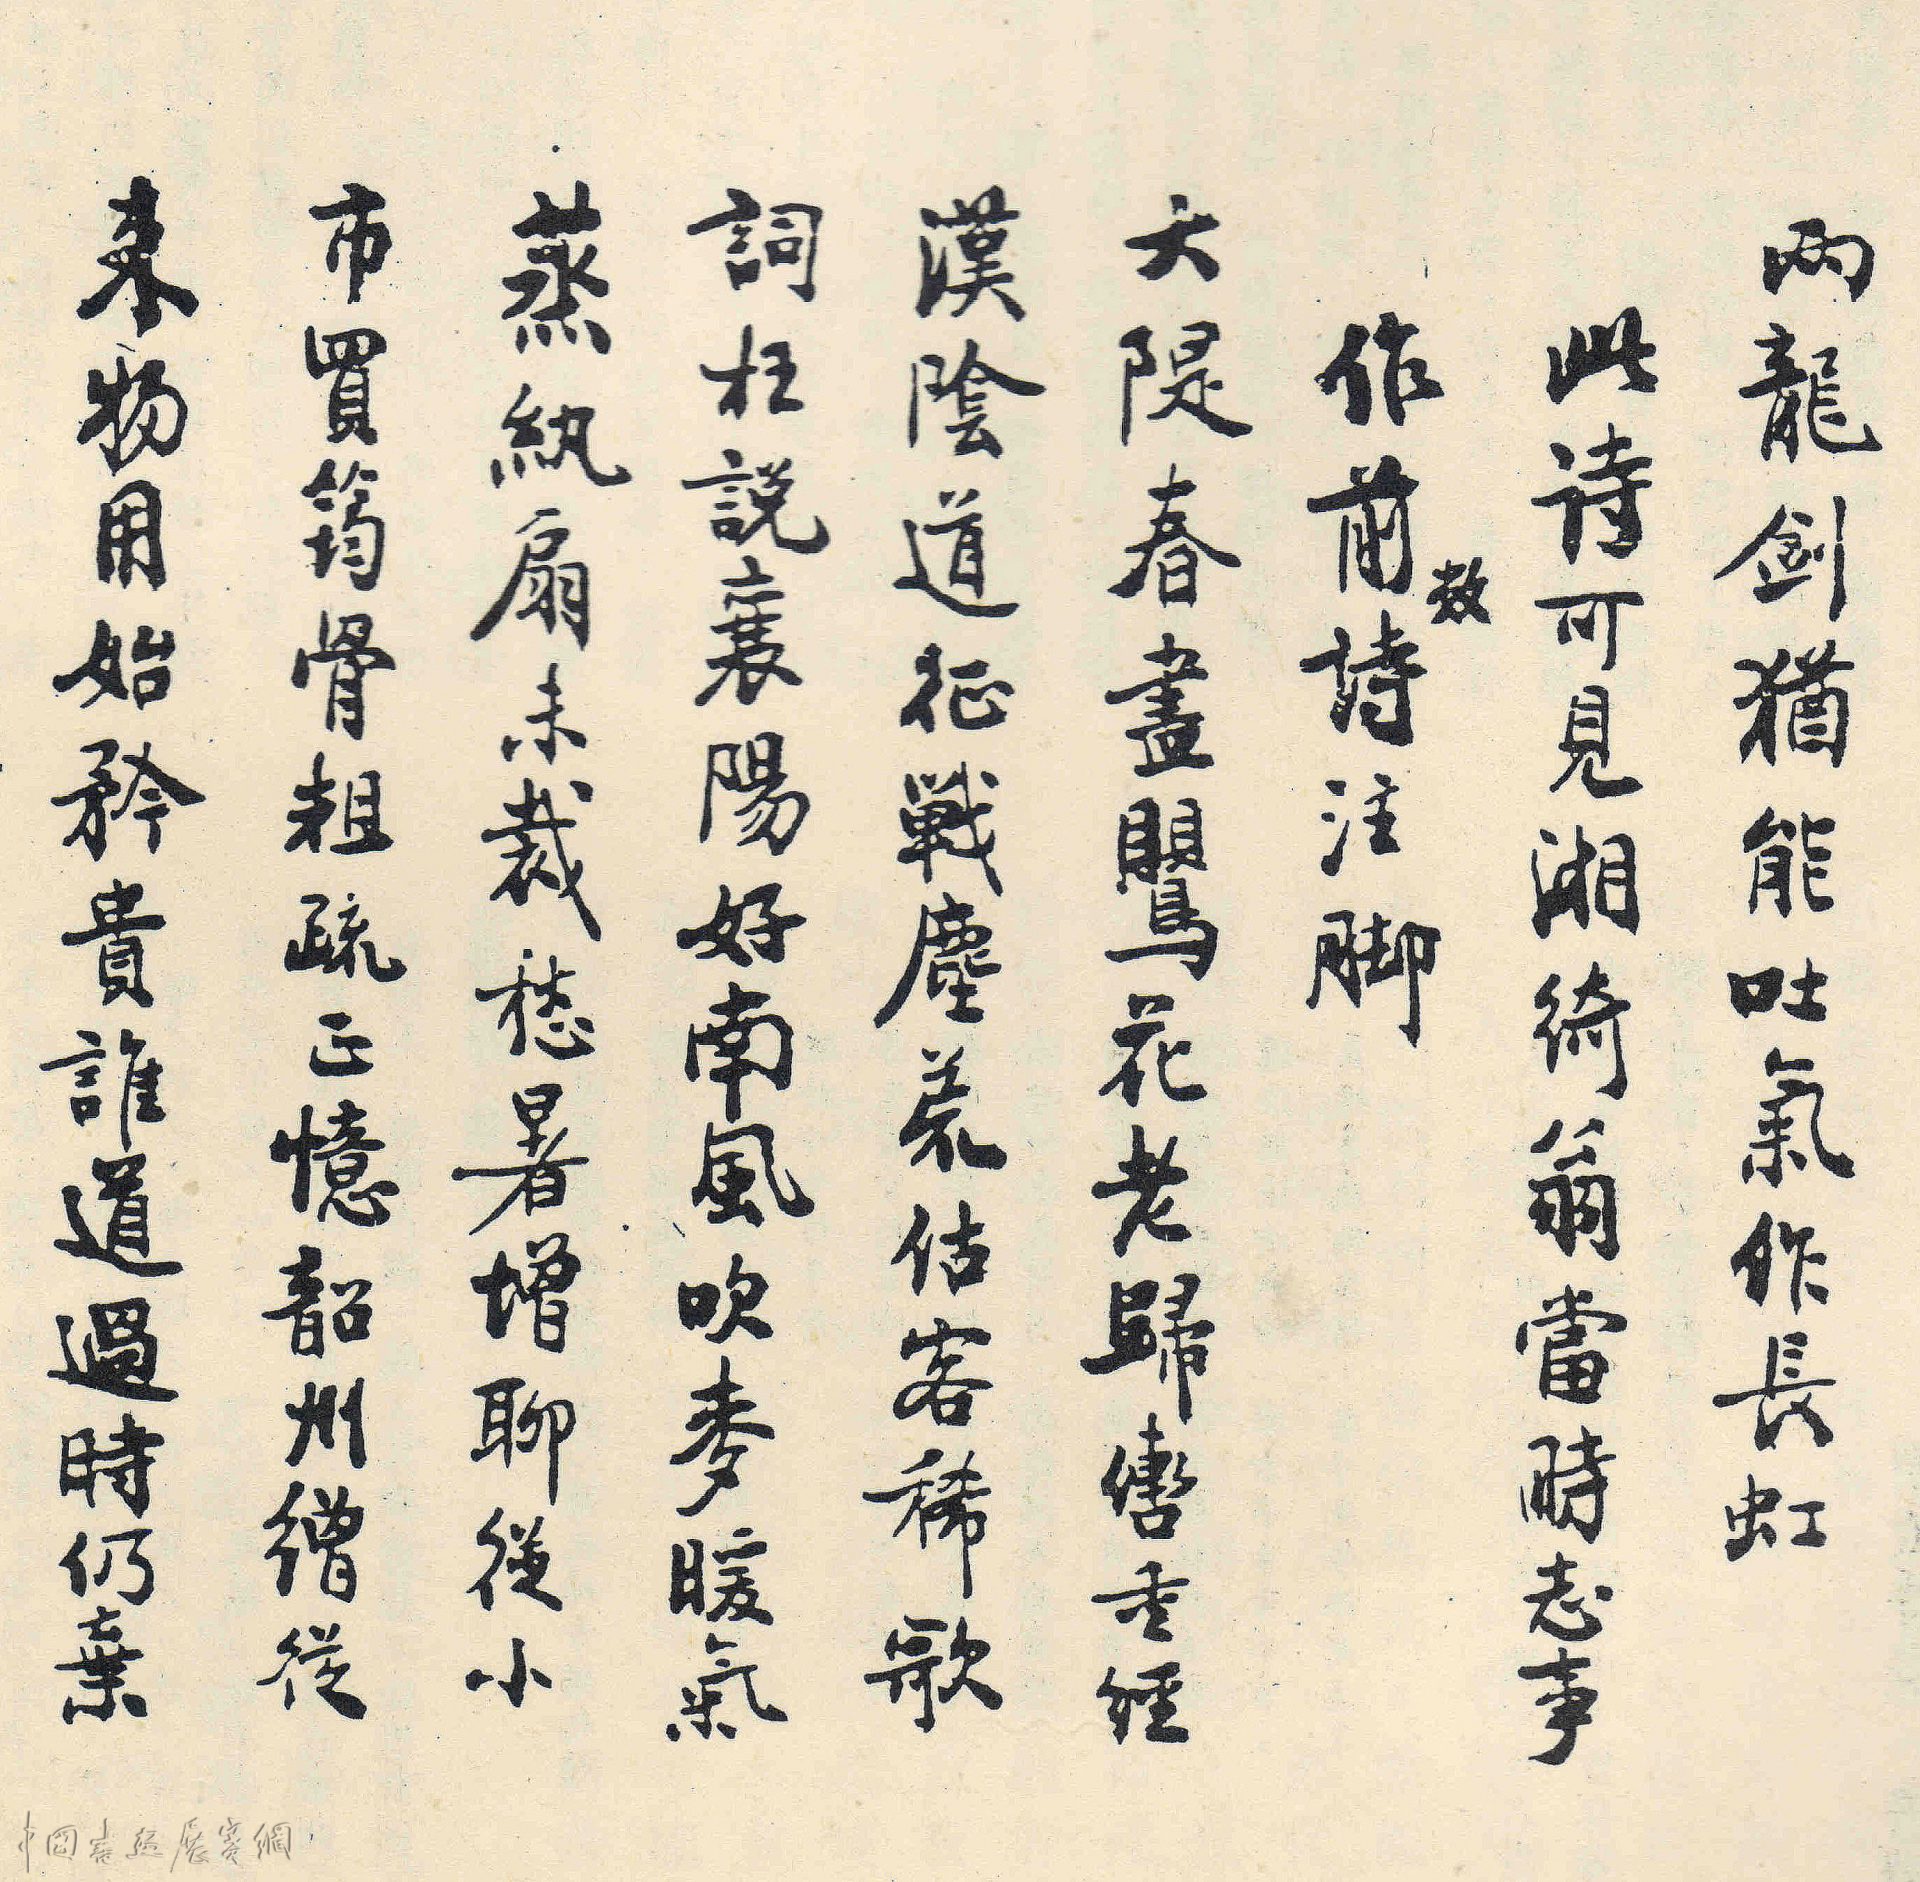 兩龍劍猶能吐氣作長虹
此詩可見湘綺翁當時志事
作前數詩注脚
大隄春盡鸎花老歸轡重經
漢陰道征戰塵荒估客稀歌
詞枉說襄陽好南風吹麥暖氣
蒸紈扇未裁愁暑增聊從小
市買筠骨粗疏正憶韶州繒從
來物用始矜貴誰道過時仍棄
中国書法展賽網